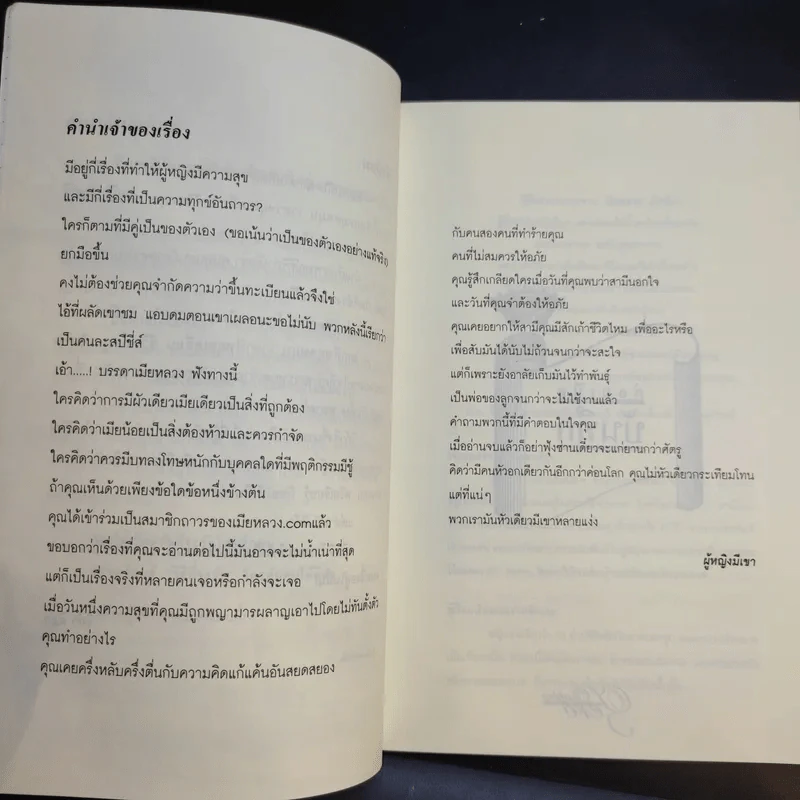 คำนำเจ้าของเรื่อง
มีอยู่กี่เรื่องที่ทำให้ผู้หญิงมีความสุข
และมีกี่เรื่องที่เป็นความทุกข์อันถาวร?
ใครก็ตามที่มีคู่เป็นของตัวเอง (ขอเน้นว่าเป็นของตัวเองอย่างแท้จริง)
ยกมือขึ้น
คงไม่ต้องช่วยคุณจำกัดความว่าขึ้นทะเบียนแล้วจึงใช่
ไอ้ที่ผลัดเขาชม แอบดมตอนเขาเผลอนะขอไม่นับ พวกหลังนี้เรียกว่า
เป็นคนละสปีชี่ส์
เอ้า.....! บรรดาเมียหลวง ฟังทางนี้
ใครคิดว่าการมีผัวเดียวเมียเดียวเป็นสิ่งที่ถูกต้อง
ใครคิดว่าเมียน้อยเป็นสิ่งต้องห้ามและควรกำจัด
ใครคิดว่าควรมีบทลงโทษหนักกับบุคคลใดที่มีพฤติกรรมมีชู้
ถ้าคุณเห็นด้วยเพียงข้อใดข้อหนึ่งข้างต้น
คุณได้เข้าร่วมเป็นสมาชิกถาวรของเมียหลวง.comแล้ว
ขอบอกว่าเรื่องที่คุณจะอ่านต่อไปนี้มันอาจจะไม่น้ำเน่าที่สุด
แต่ก็เป็นเรื่องจริงที่หลายคนเจอหรือกำลังจะเจอ
เมื่อวันหนึ่งความสุขที่คุณมีถูกพญามารผลาญเอาไปโดยไม่ทันตั้งตัว
คุณทำอย่างไร
คุณเคยครึ่งหลับครึ่งตื่นกับความคิดแก้แค้นอันสยดสยอง
กับคนสองคนที่ทำร้ายคุณ
คนที่ไม่สมควรให้อภัย
คุณรู้สึกเกลียดใครเมื่อวันที่คุณพบว่าสามีนอกใจ
และวันที่คุณจำต้องให้อภัย
คุณเคยอยากให้สามีคุณมีสักเก้าชีวิตไหม เพื่ออะไรหรือ
เพื่อสับมันได้นับไม่ถ้วนจนกว่าจะสะใจ
แต่ก็เพราะยังอาลัยเก็บมันไว้ทำพันธุ์
เป็นพ่อของลูกจนกว่าจะไม่ใช้งานแล้ว
คำถามพวกนี้ที่มีคำตอบในใจคุณ
เมื่ออ่านจบแล้วก็อย่าฟุ้งซ่านเดี๋ยวจะแก่ยานกว่าศัตรู
คิดว่ามีคนหัวอกเดียวกันอีกกว่าค่อนโลก คุณไม่หัวเดียวกระเทียมโทน
แต่ที่แน่ๆ
พวกเรามันหัวเดียวมีเขาหลายแง่ง
ผู้หญิงมีเขา